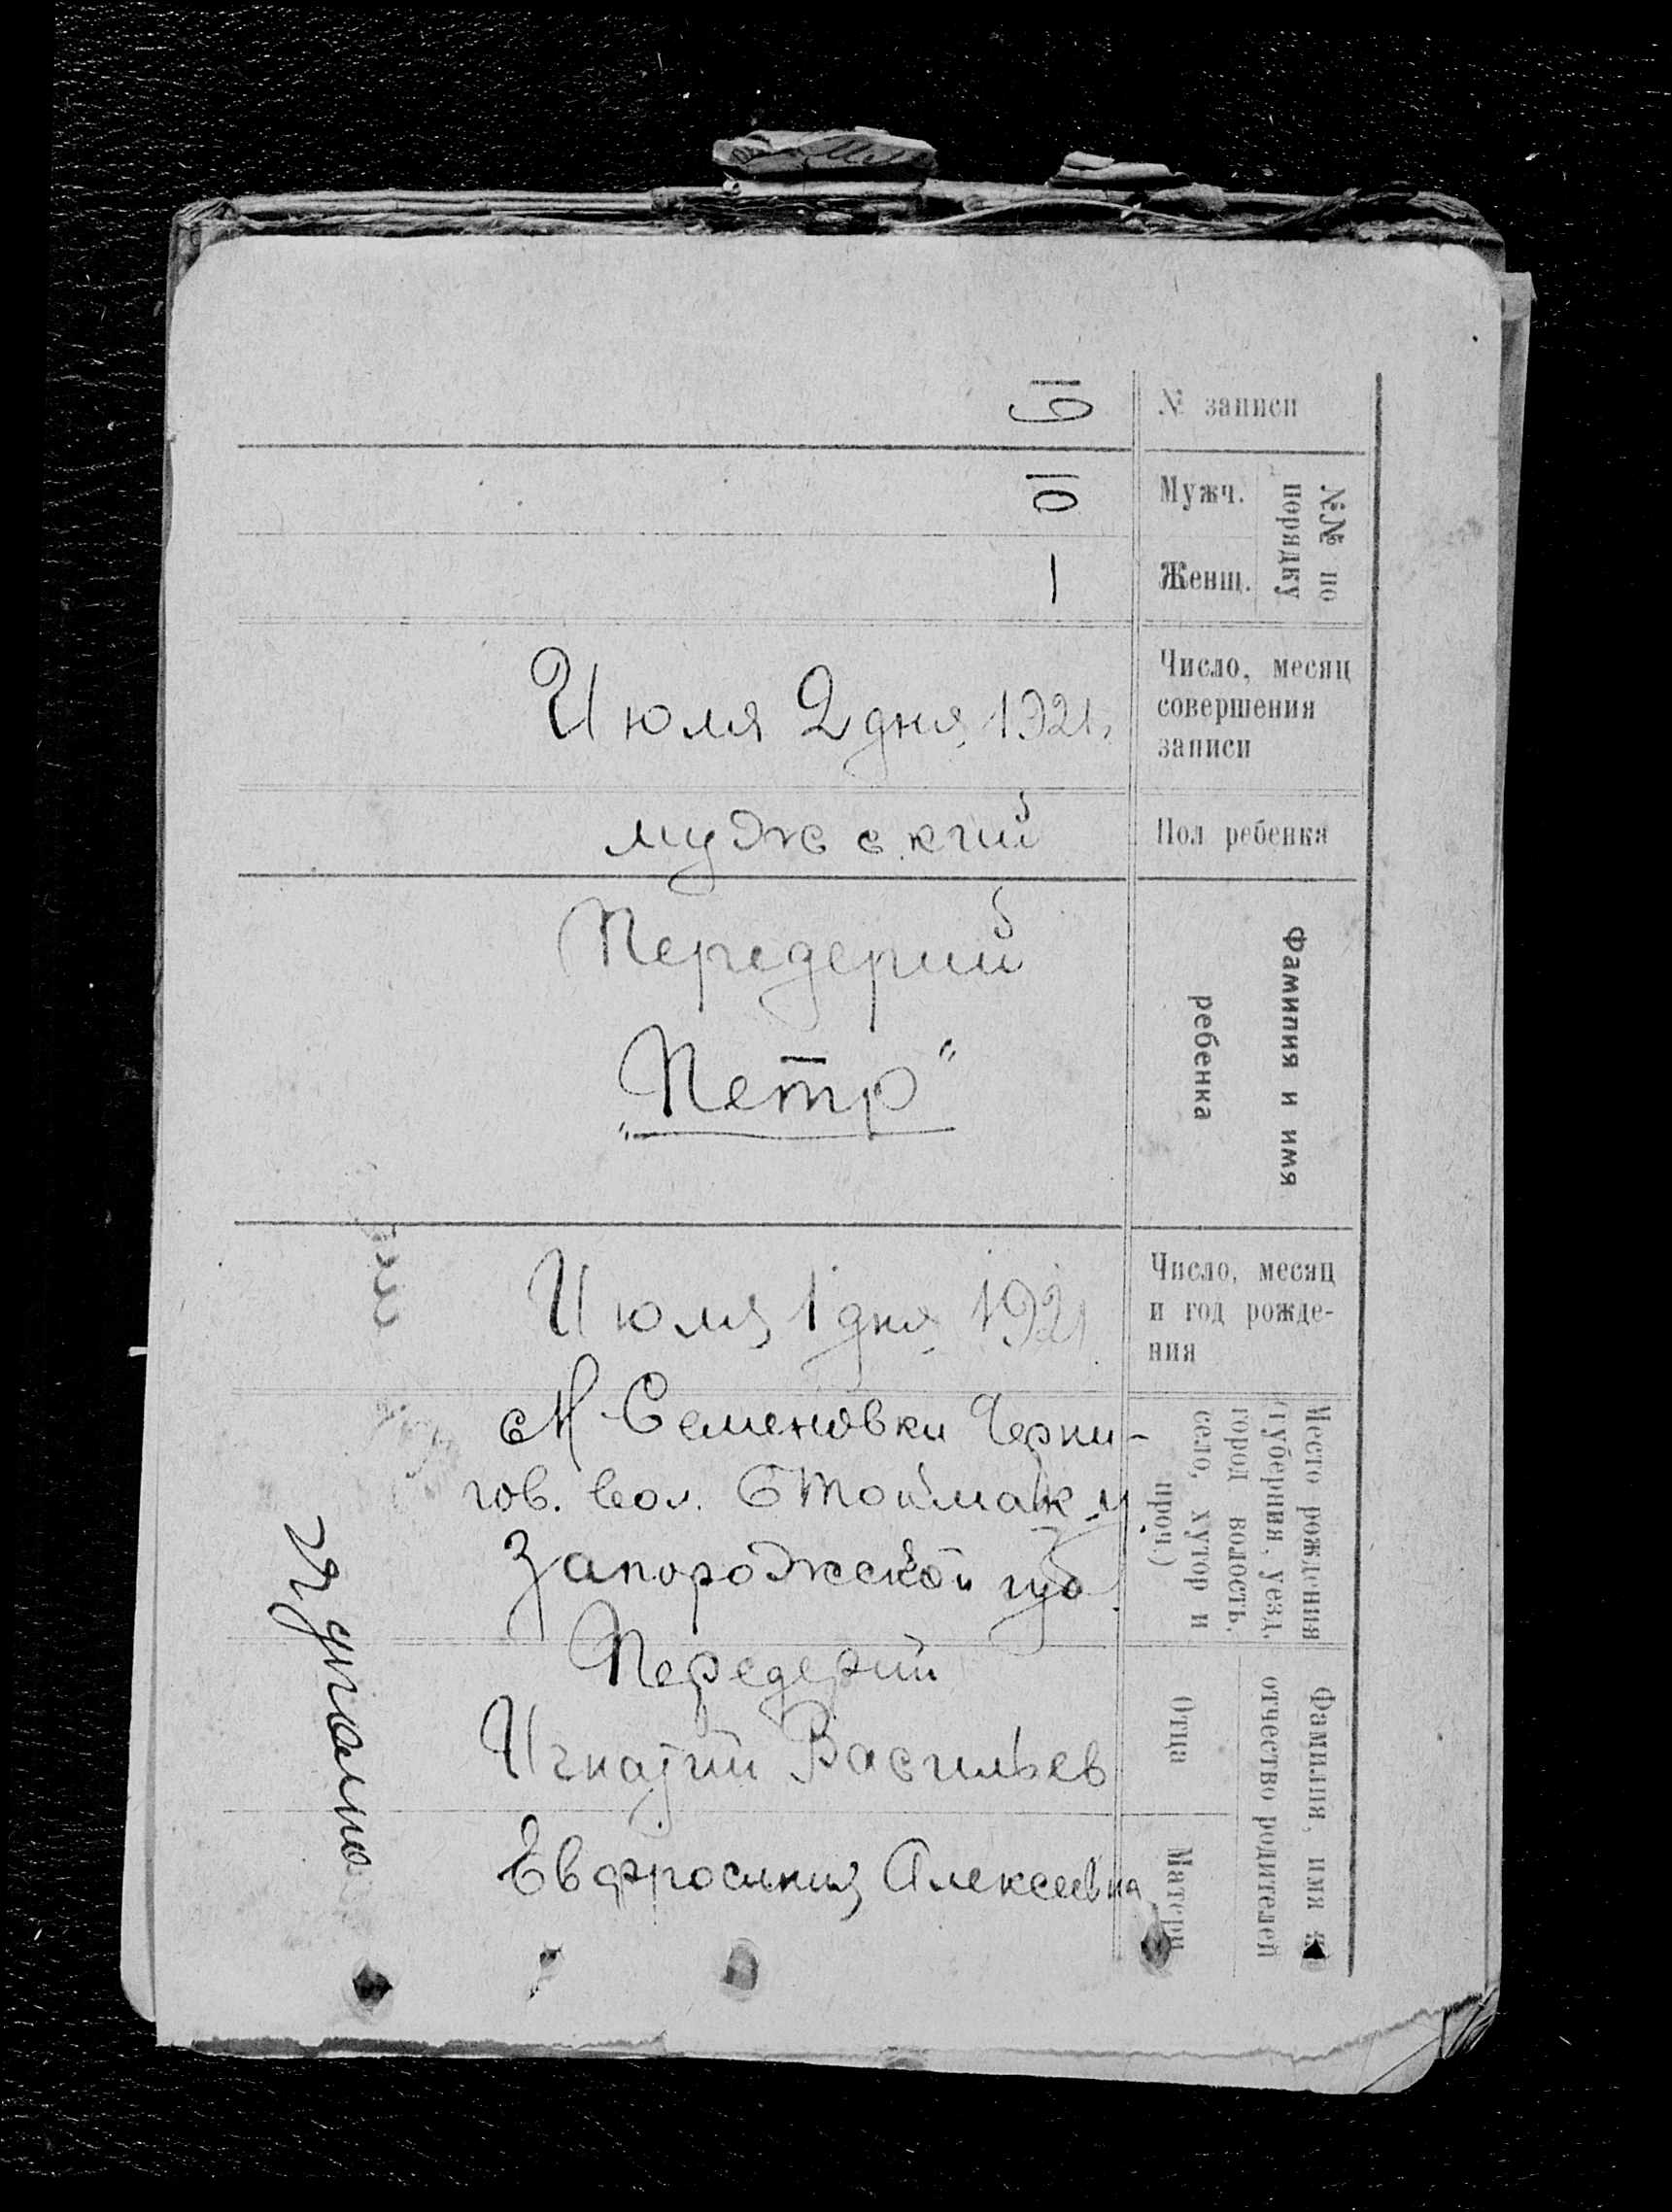 № записи
19
№№ по
порядку
Мужч.
10
Женщ.
—
Число, месяц
совершения
записи
Июля 2 дня 1921.
Пол ребенка
мужский
Фамилия и имя
ребенка
Передерий
„Петр“
Число, месяц
и год рожде-
ния
Июля 1 дня 1921
Место рождения
(губерния, уезд,
город волость,
село, хутор и
проч.)
М-Семеновки Черни-
гов. вол. Б Токмак у.
Запорожской губ.
Фамилия, имя и
отчество родителей
Отца
Передерий
Игнатий Васильев
Матери
Евфросиния Алексеевна